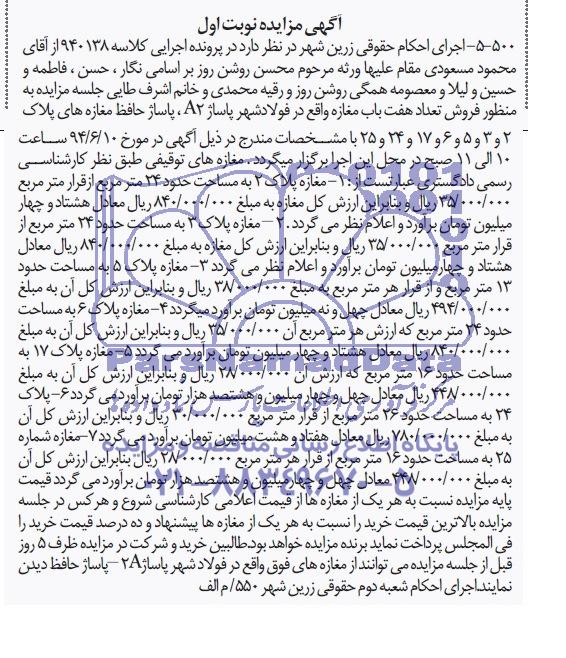 آگهی مزایده نوبت اول
۵-۵۰۰- اجرای احکام حقوقی زرین شهر در نظر دارد در پرونده اجرایی کلاسه ۹۴۰۱۳۸ از آقای
محمود مسعودی مقام علیها ورثه مرحوم محسن روشن روز بر اسامی نگار ، حسن ، فاطمه و
حسین و لیلا و معصومه همگی روشن روز و رقیه محمدی و خانم اشرف طایی جلسه مزایده به
منظور فروش تعداد هفت باب مغازه واقع در فولادشهر پاساژ A۲ ، پاساژ حافظ مغازه های پلاک
۲ و ۳ و ۵ و ۶ و ۱۷ و ۲۴ و ۲۵ با مشخصات مندرج در ذیل آگهی در مورخ ۹۴/۶/۱۰ ساعت
۱۰ الی ۱۱ صبح در محل این اجرا برگزار میگردد . مغازه های توقیفی طبق نظر کارشناسی
رسمی دادگستری عبارتست از : ۱- مغازه پلاک ۲ به مساحت حدود ۲۴ متر مربع ازقرار متر مربع
۳۵/۰۰۰/۰۰۰ ریال و بنابراین ارزش کل مغازه به مبلغ ۸۴۰/۰۰۰/۰۰۰ ریال معادل هشتاد و چهار
میلیون تومان برآورد و اعلام نظر می گردد. ۲ – مغازه پلاک ۳ به مساحت حدود ۲۴ متر مربع از
قرار متر مربع ۳۵/۰۰۰/۰۰۰ ریال و بنابراین ارزش کل مغازه به مبلغ ۸۴۰/۰۰۰/۰۰۰ ریال معادل
هشتاد و چهارمیلیون تومان برآورد و اعلام نظر می گردد ۳- مغازه پلاک ۵ به مساحت حدود
۱۳ متر مربع و از قرار هر متر مربع به مبلغ ۳۸/۰۰۰/۰۰۰ ریال و بنابراین ارزش کل آن به مبلغ
۴۹۴/۰۰۰/۰۰۰ ریال معادل چهل و نه میلیون تومان برآورد میگردد ۴- مغازه پلاک ۶ به مساحت
حدود ۲۴ متر مربع که ارزش هر متر مربع آن ۳۵/۰۰۰/۰۰۰ ریال و بنابراین ارزش کل آن به مبلغ
۸۴۰/۰۰۰/۰۰۰ ریال معادل هشتاد و چهار میلیون تومان برآورد می گردد ۵- مغازه پلاک ۱۷ به
مساحت حدود ۱۶ متر مربع که ارزش آن ۲۸/۰۰۰/۰۰۰ ریال و بنابراین ارزش کل آن به مبلغ
۴۴۸/۰۰۰/۰۰۰ ریال معادل چهل و چهار میلیون و هشتصد هزار تومان برآورد می گردد ۶- پلاک
۲۴ به مساحت حدود ۲۶ متر مربع از قرار متر مربع ۳۰/۰۰۰/۰۰۰ ریال و بنابراین ارزش کل آن
به مبلغ ۷۸۰/۰۰۰/۰۰۰ ریال معادل هفتاد و هشت میلیون تومان برآورد می گردد ۷- مغازه شماره
۲۵ به مساحت حدود ۱۶ متر مربع از قرار هر متر مربع ۲۸/۰۰۰/۰۰۰ ریال بنابراین ارزش کل آن
به مبلغ ۴۴۸/۰۰۰/۰۰۰ ریال معادل چهل و چهار میلیون و هشتصد هزار تومان برآورد می گردد قیمت
پایه مزایده نسبت به هر یک از مغازه ها از قیمت اعلامی کارشناسی شروع و هر کس در جلسه
مزایده بالاترین قیمت خرید را نسبت به هر یک از مغازه ها پیشنهاد و ده درصد قیمت خرید را
فی المجلس پرداخت نماید برنده مزایده خواهد بود.طالبین خرید و شرکت در مزایده ظرف ۵ روز
قبل از جلسه مزایده می توانند از مغازه های فوق واقع در فولاد شهر پاساژ۲A –پاساژ حافظ دیدن
نمایند.اجرای احکام شعبه دوم حقوقی زرین شهر ۵۵۰/ م الف
ParsNamadData
پایگاه اطلاع رسانی مناقصه و مزایده
۰۲۱-۸۸۳۴۹۶۷۰-۵